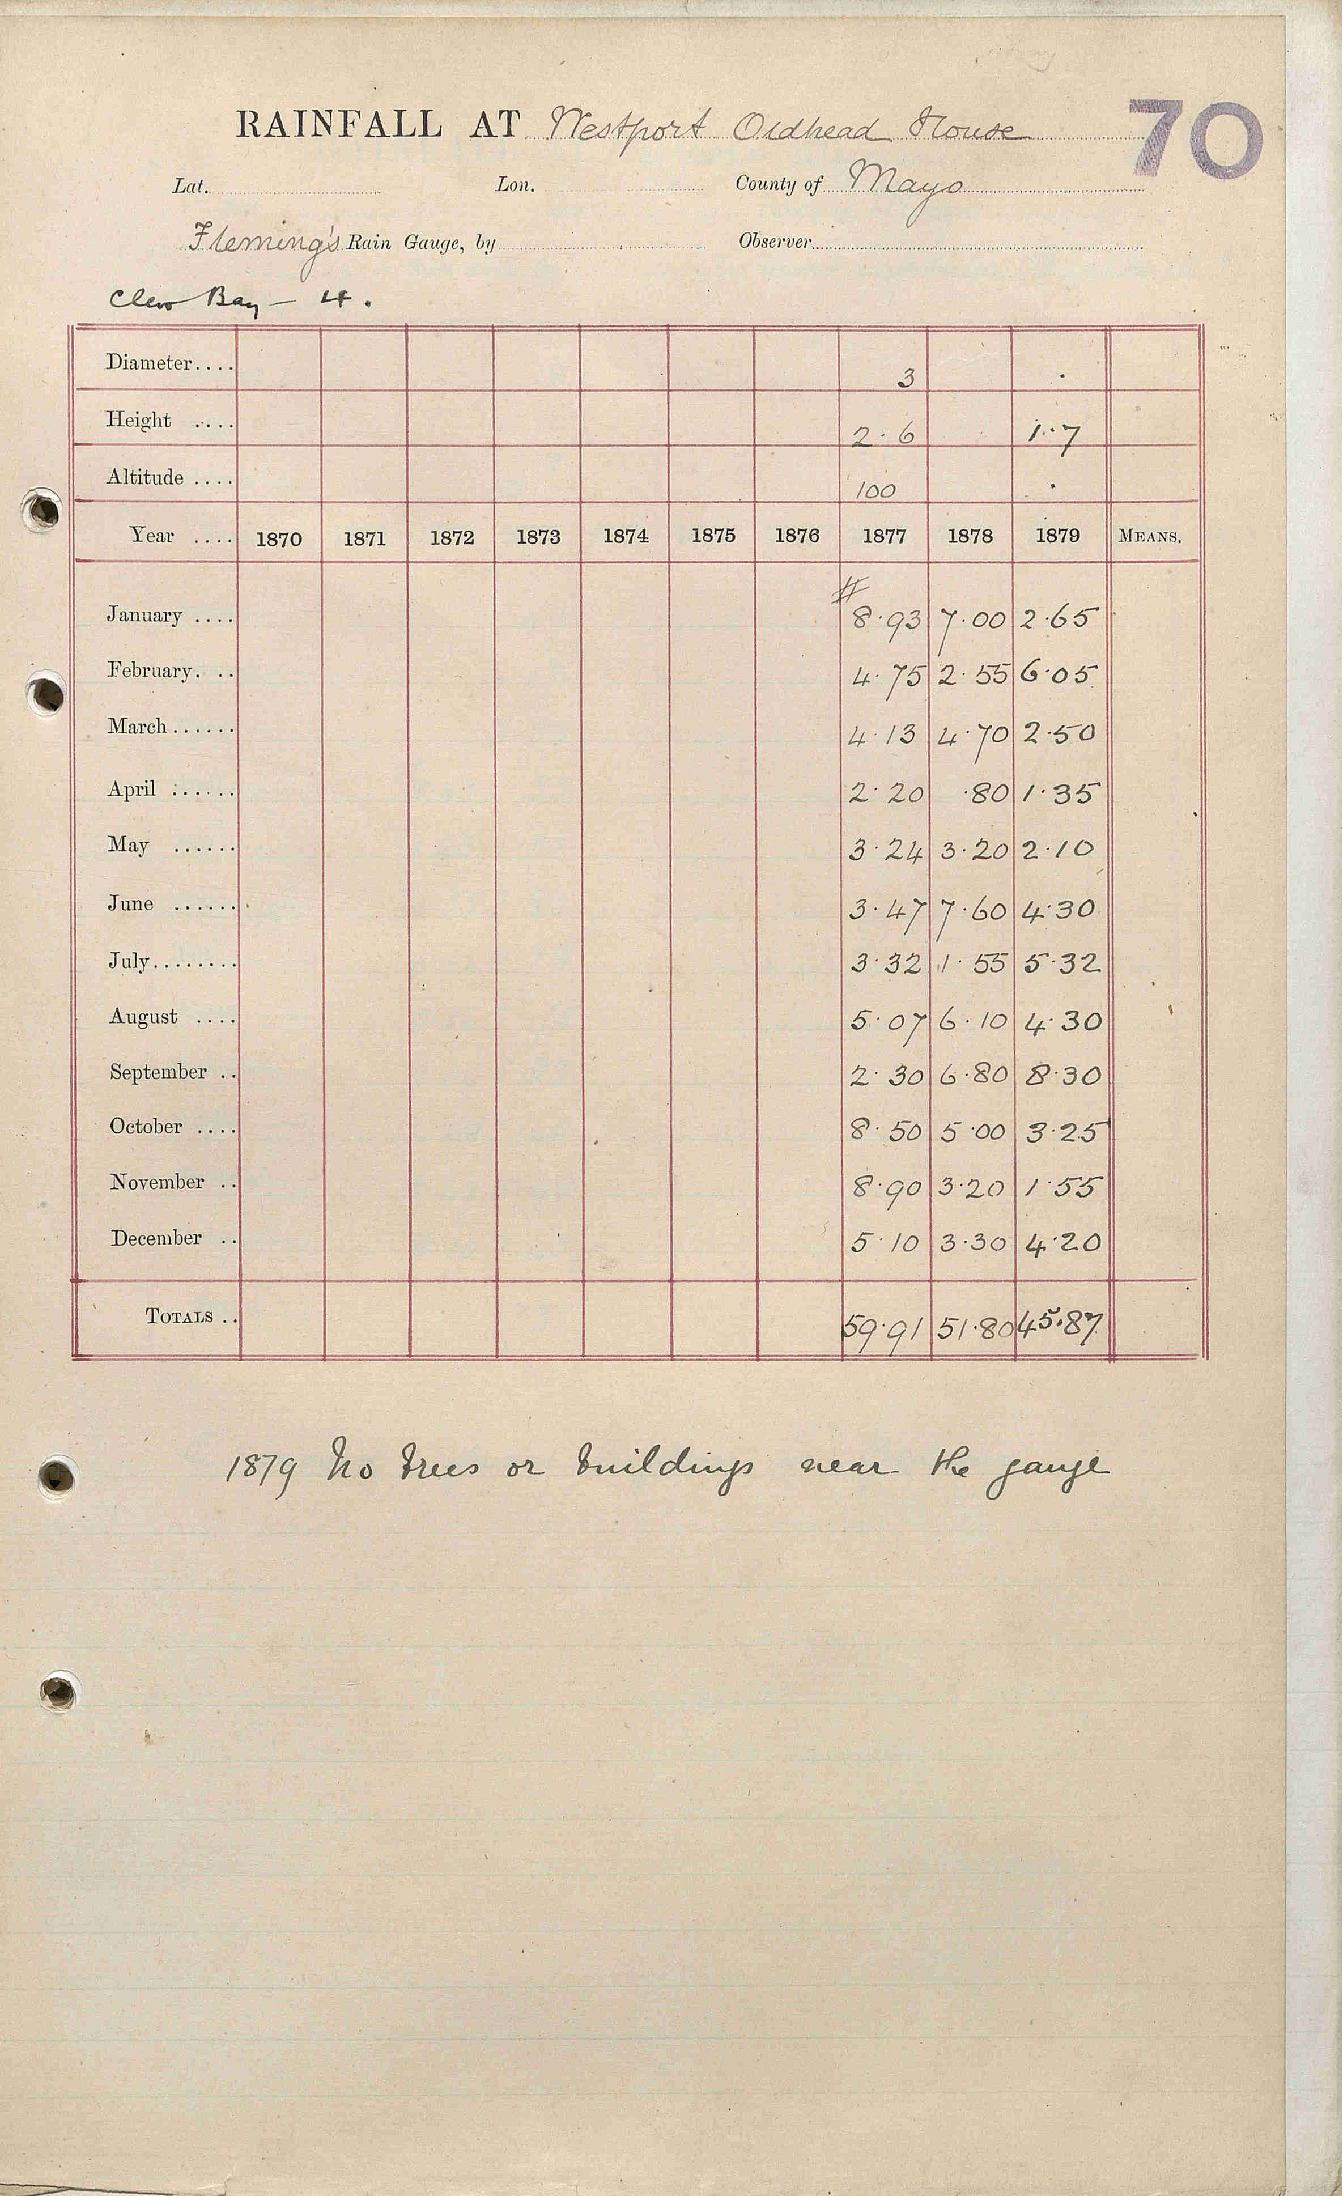 70
RAINFALL AT Westport Oldhead House
Lat. Lon. County of Mayo
Fleming's Rain Gauge, by Observer
Clew Bay – 4.
Diameter.... 3
Height .... 2·6 1·7
Altitude .... 100
Year .... 1870 1871 1872 1873 1874 1875 1876 1877 1878 1879 MEANS.
#
January .... 8·93 7·00 2·65
February. .. 4·75 2·55 6·05
March...... 4·13 4·70 2·50
April ...... 2·20 ·80 1·35
May ...... 3·24 3·20 2·10
June ...... 3·47 7·60 4·30
July........ 3·32 1·55 5·32
August .... 5·07 6·10 4·30
September .. 2·30 6·80 8·30
October .... 8·50 5·00 3·25
November .. 8·90 3·20 1·55
December .. 5·10 3·30 4·20
TOTALS .. 59·91 51·80 45·87
1879 No trees or buildings near the gauge